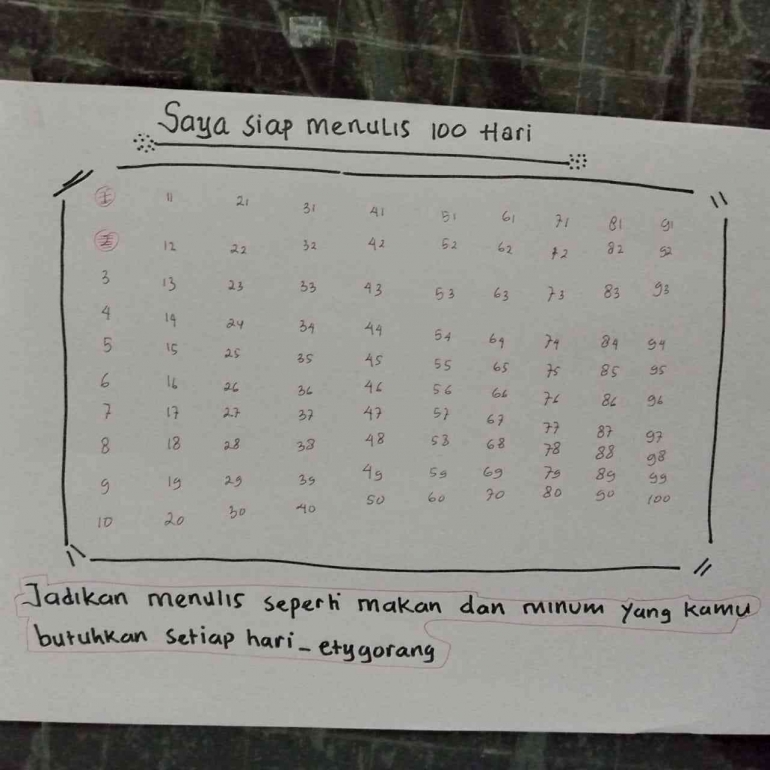 Saya siap menulis 100 Hari
1 11 21 31 41 51 61 71 81 91
2 12 22 32 42 52 62 72 82 92
3 13 23 33 43 53 63 73 83 93
4 14 24 34 44 54 64 74 84 94
5 15 25 35 45 55 65 75 85 95
6 16 26 36 46 56 66 76 86 96
7 17 27 37 47 57 67 77 87 97
8 18 28 38 48 58 68 78 88 98
9 19 29 39 49 59 69 79 89 99
10 20 30 40 50 60 70 80 90 100
Jadikan menulis seperti makan dan minum yang kamu
butuhkan setiap hari - etygorang